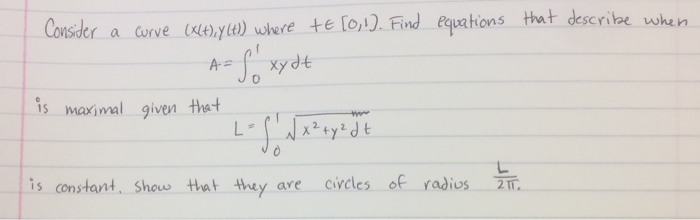 Consider a curve (x(t),y(t)) where t∈[0,1]. Find equations that describe when
A = ∫₀¹ xy dt
is maximal given that
L = ∫₀¹ √(x²+y²) dt
is constant. Show that they are circles of radius L/2π.